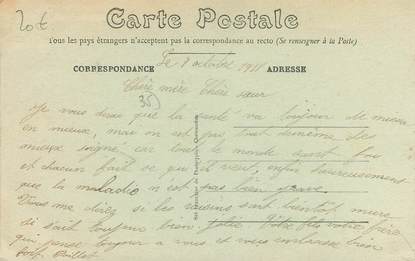 20€
Carte Postale
Tous les pays étrangers n'acceptent pas la correspondance au recto (Se renseigner à la Poste)
CORRESPONDANCE
ADRESSE
Le 8 octobre 1911
Chère mère Chère sœur
35)
Je vous dirai que la santé va toujour de mieux
en mieux, mai on est pas tout de même des
mieux soigné car tout le monde
et chacun fait se qu'il veut enfin heureusement
que la maladie n'est pas bien grave
Vous me direz si les raisins sont bientôt murs
si sait toujour bien. Votre fils votre frère
qui pense toujour a vous et vous embrasse bien
fort.